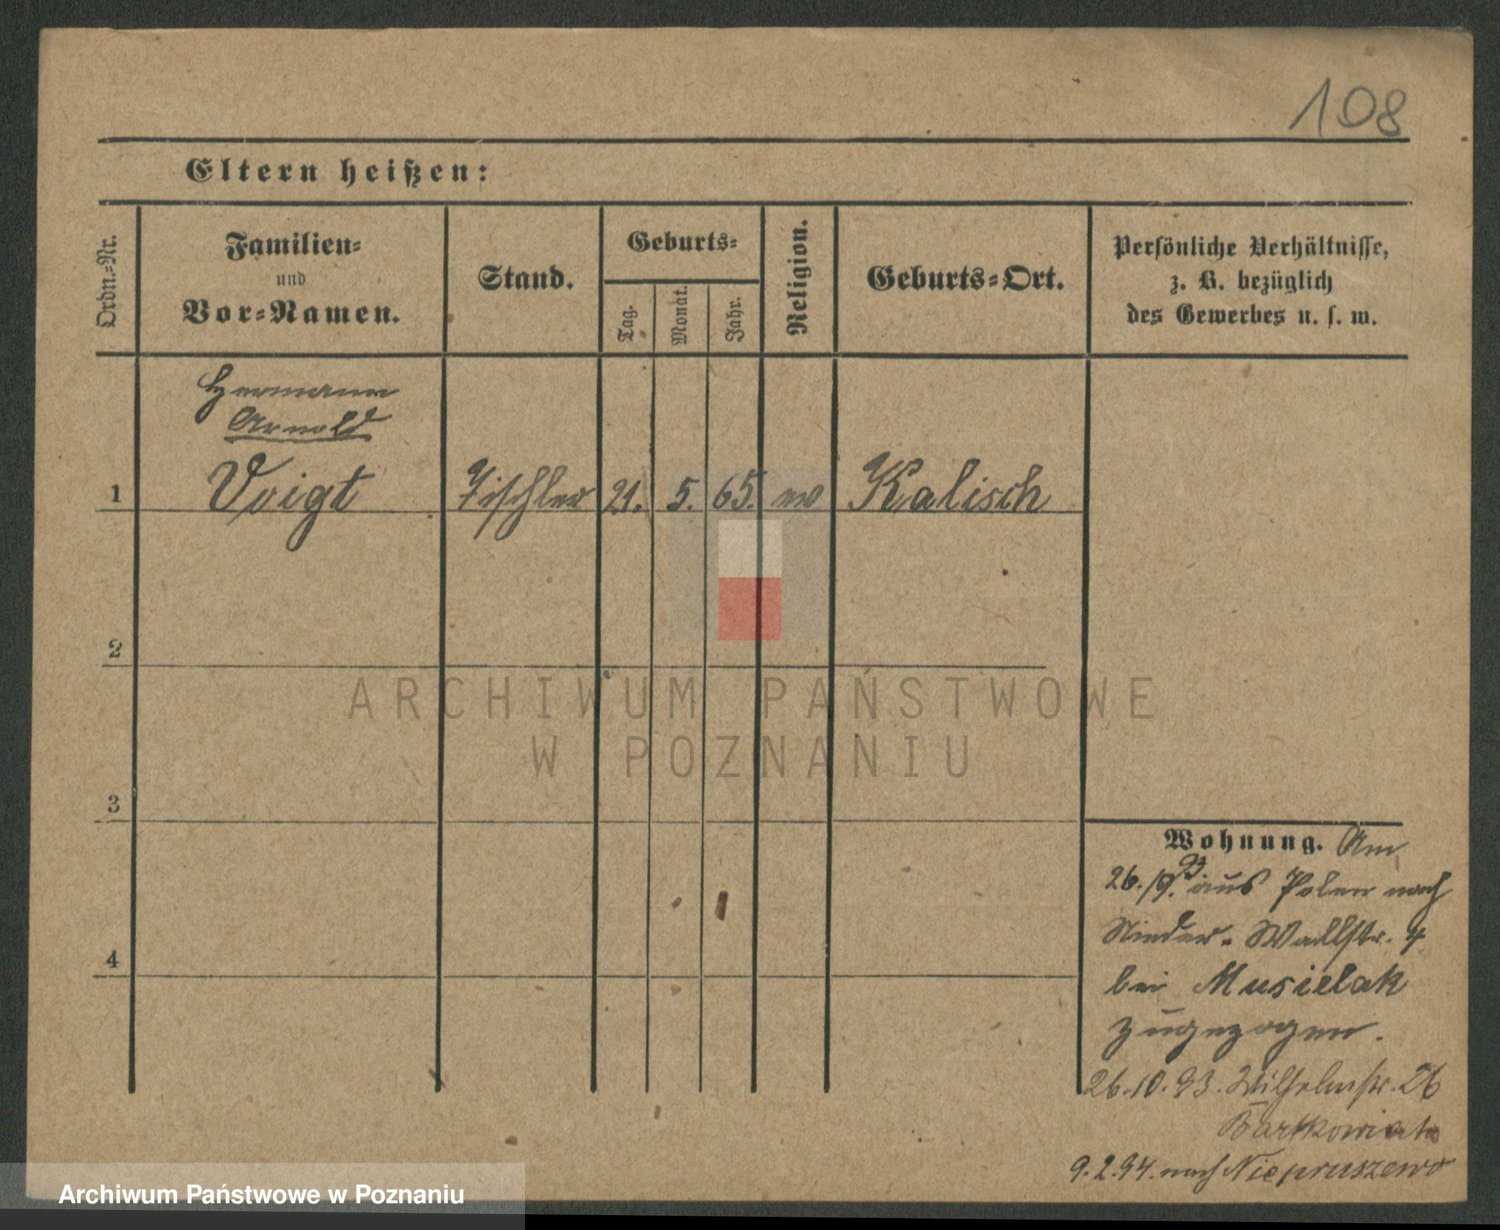 108
Eltern heißen:
Ordn.-Nr.
Familien-
und
Vor-Namen.
Stand.
Geburts-
Tag.
Monat.
Jahr.
Religion.
Geburts-Ort.
Persönliche Verhältnisse,
z. B. bezüglich
des Gewerbes u. s. w.
Hermann
Arnold
1 Voigt Tischler 21. 5. 65. ev Kalisch
2
ARCHIWUM PAŃSTWOWE
W POZNANIU
3
Wohnung. Am
26./9. 93 aus Polen nach
Nieder-Wallstr. 4
bei Musielak
zugezogen.
4
26.10.93. Wilhelmstr. 26
Bartkowiak
9.2.94. nach Niepruszewo
Archiwum Państwowe w Poznaniu